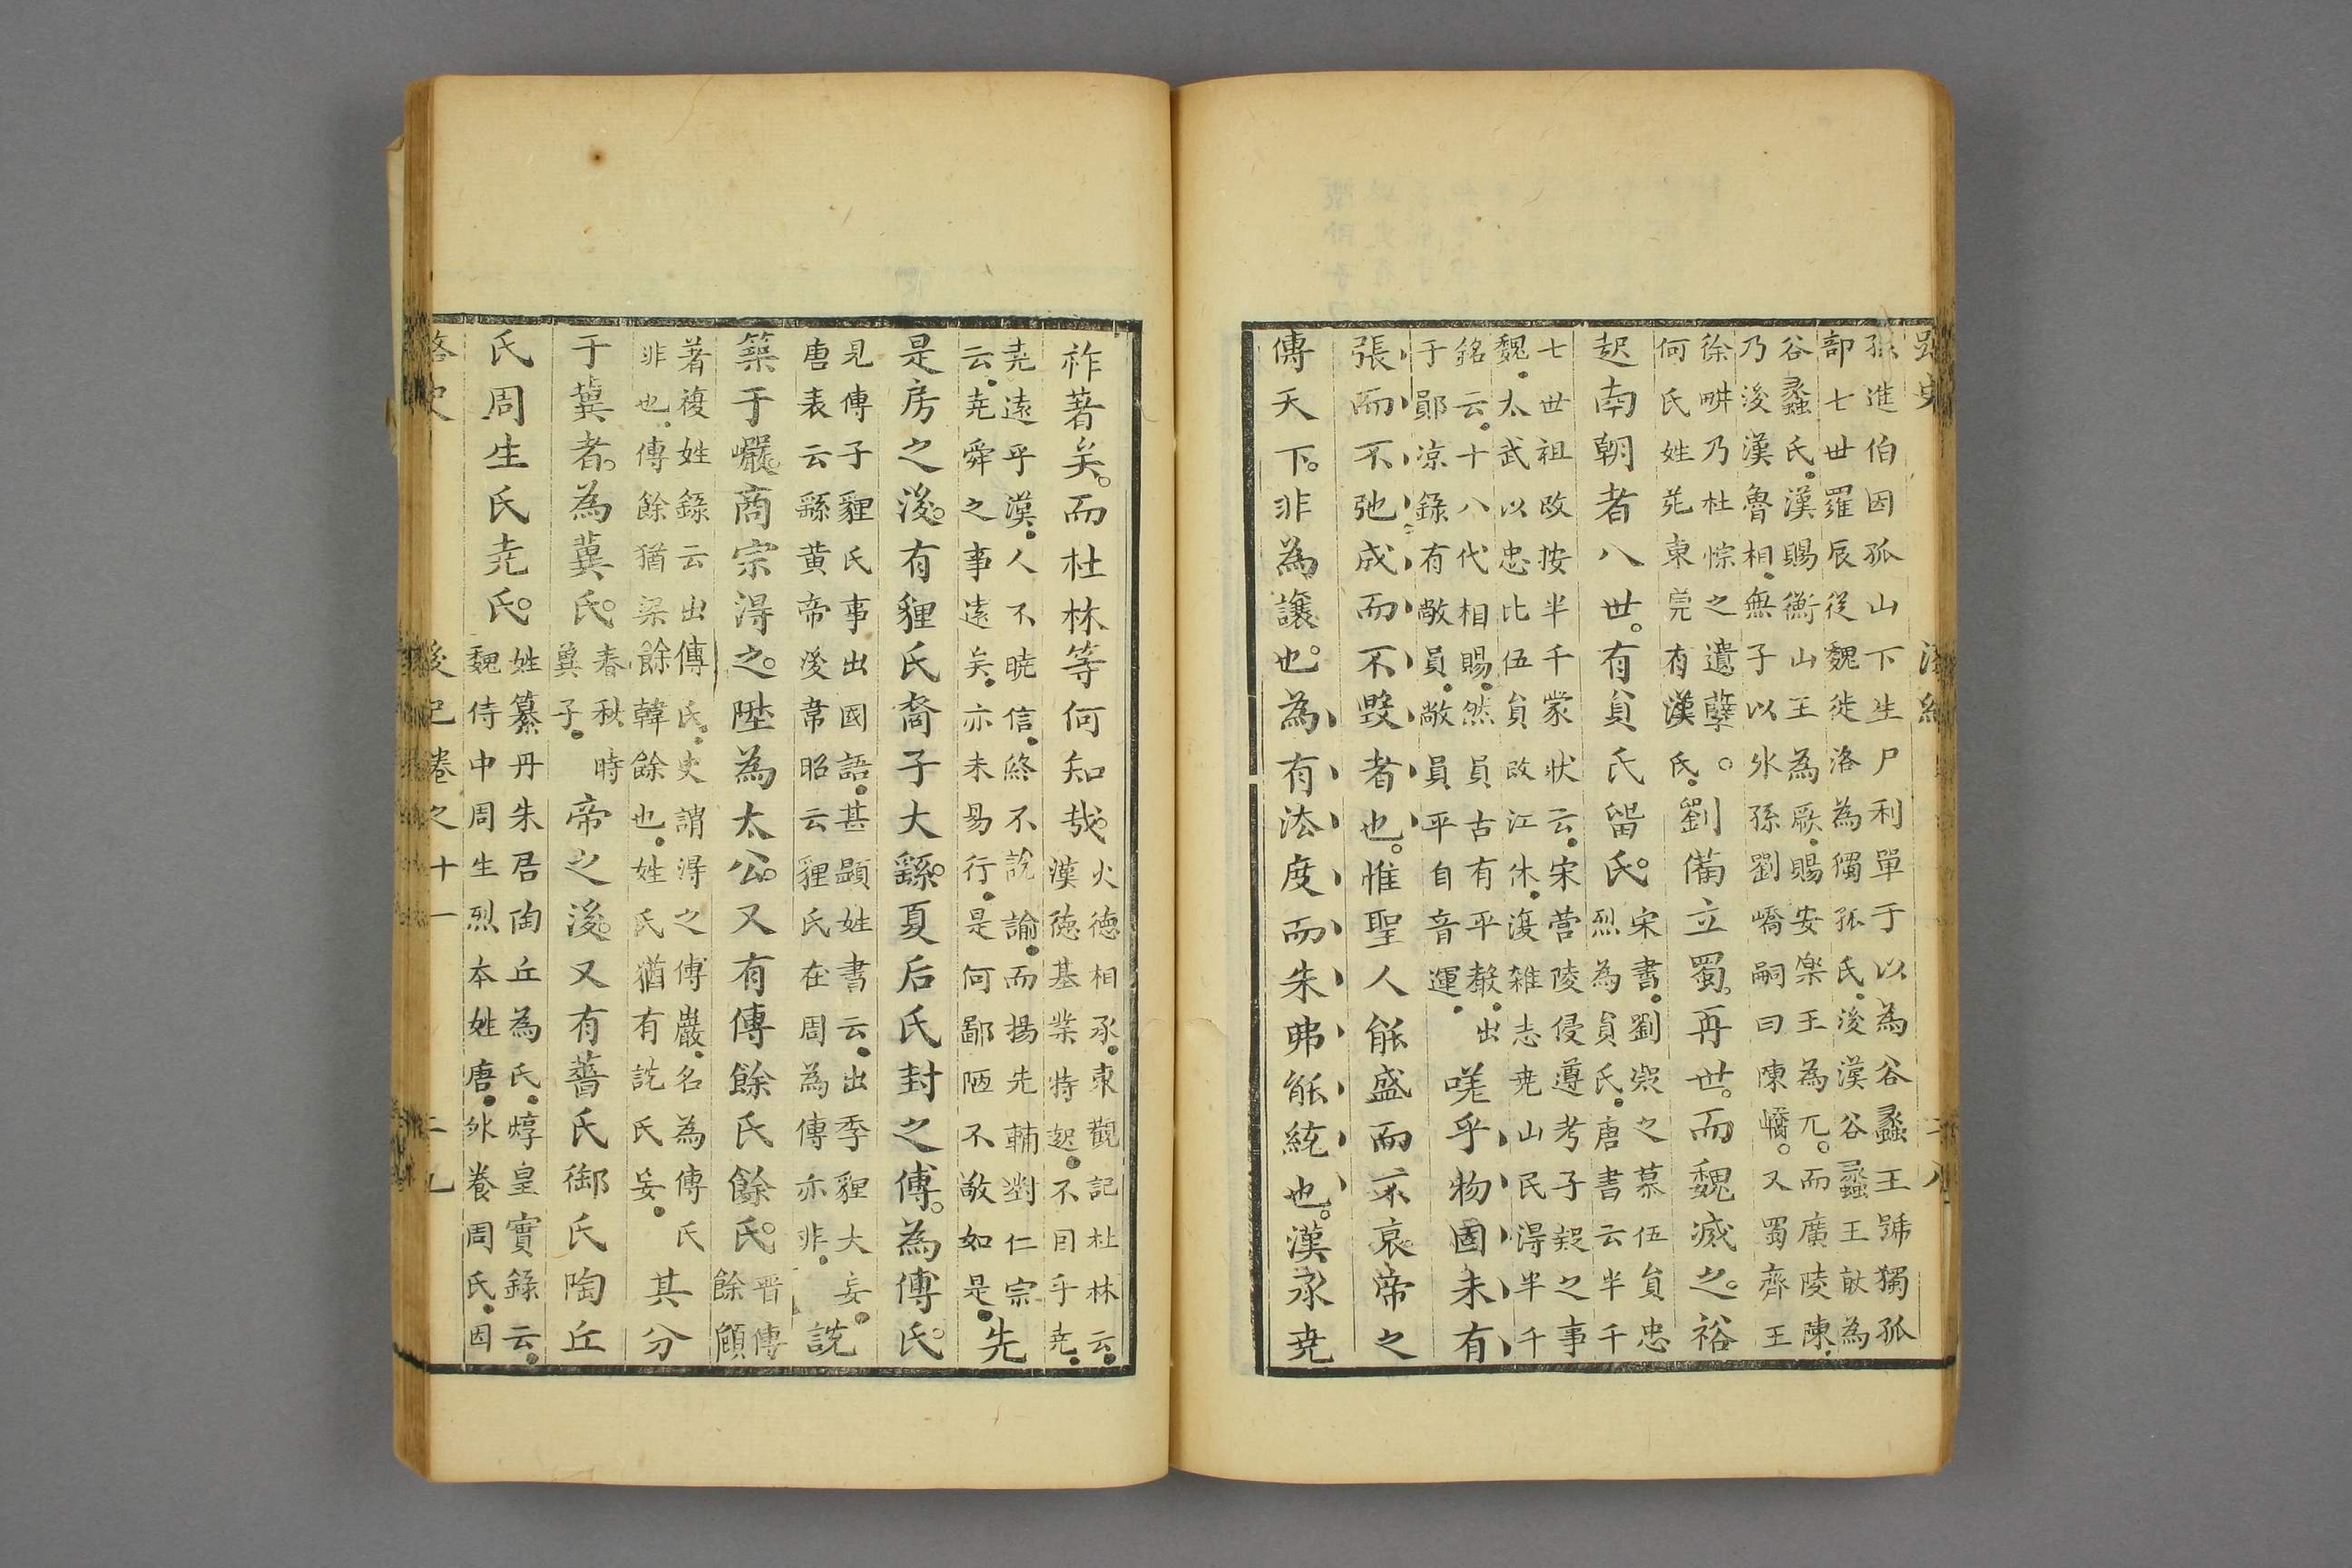 孫進伯因孤山下生尸利單于以為谷蠡王號獨孤
部七世羅辰從魏徙洛為獨孤氏後漢谷蠡王猷為
谷蠡氏漢賜衡山王為厥賜安樂王為兀而廣陵陳
乃後漢魯相無子以外孫劉嶠嗣曰陳嶠又蜀齊王
徐畊乃杜悰之遺孽
何氏姓苑東莞有漢氏
劉備立蜀再世而魏滅之裕
起南朝者八世有貟氏留氏
宋書劉凝之慕伍貟忠
烈為貟氏唐書云半千
七世祖改按半千家狀云宋營陵侵遵考子起之事
魏太武以忠比伍貟改江休復雜志尭山民得半千
銘云十八代相賜然員古有平聲出
于鄖凉錄有敞員敞員平自音運
嗟乎物固未有
張而不弛成而不毀者也惟聖人能盛而不衰帝之
傳天下非為讓也為有法度而朱弗能統也漢承尭
祚著矣而杜林等何知哉
火德相承東觀記杜林云
漢德基業特起不因乎尭
尭遠乎漢人不曉信終不說諭而揚先輔對仁宗
云尭舜之事遠矣亦未易行是何鄙陋不敢如是
先
是房之後有貍氏裔子大繇夏后氏封之傅為傅氏
見傅子貍氏事出國語甚顯姓書云出季貍大妄
唐表云繇黄帝後韋昭云貍氏在周為傅亦非
說
築于巖商宗得之陞為太公又有傅餘氏餘氏
晋傅
餘頠
著複姓錄云出傅氏史謂得之傅巖名為傅氏
非也傅餘猶梁餘韓餘也姓氏猶有說氏妄
其分
于兾者為兾氏
春秋時
兾子
帝之後又有薔氏御氏陶丘
氏周生氏尭氏
姓纂丹朱居陶丘為氏焞皇實錄云
魏侍中周生烈本姓唐外養周氏因
路史
後紀卷之十一
二九